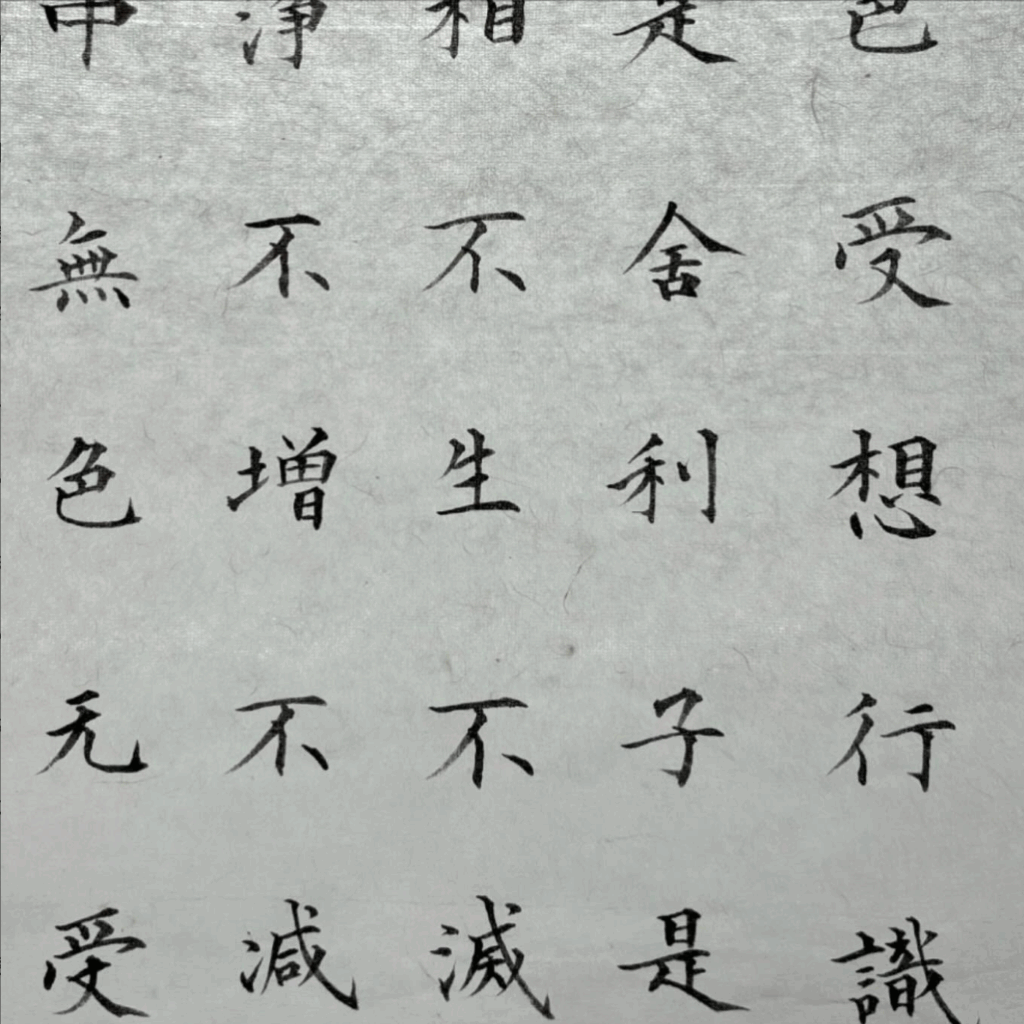 色受想行識
是舍利子是
相不生不滅
淨不増不減
中無色无受